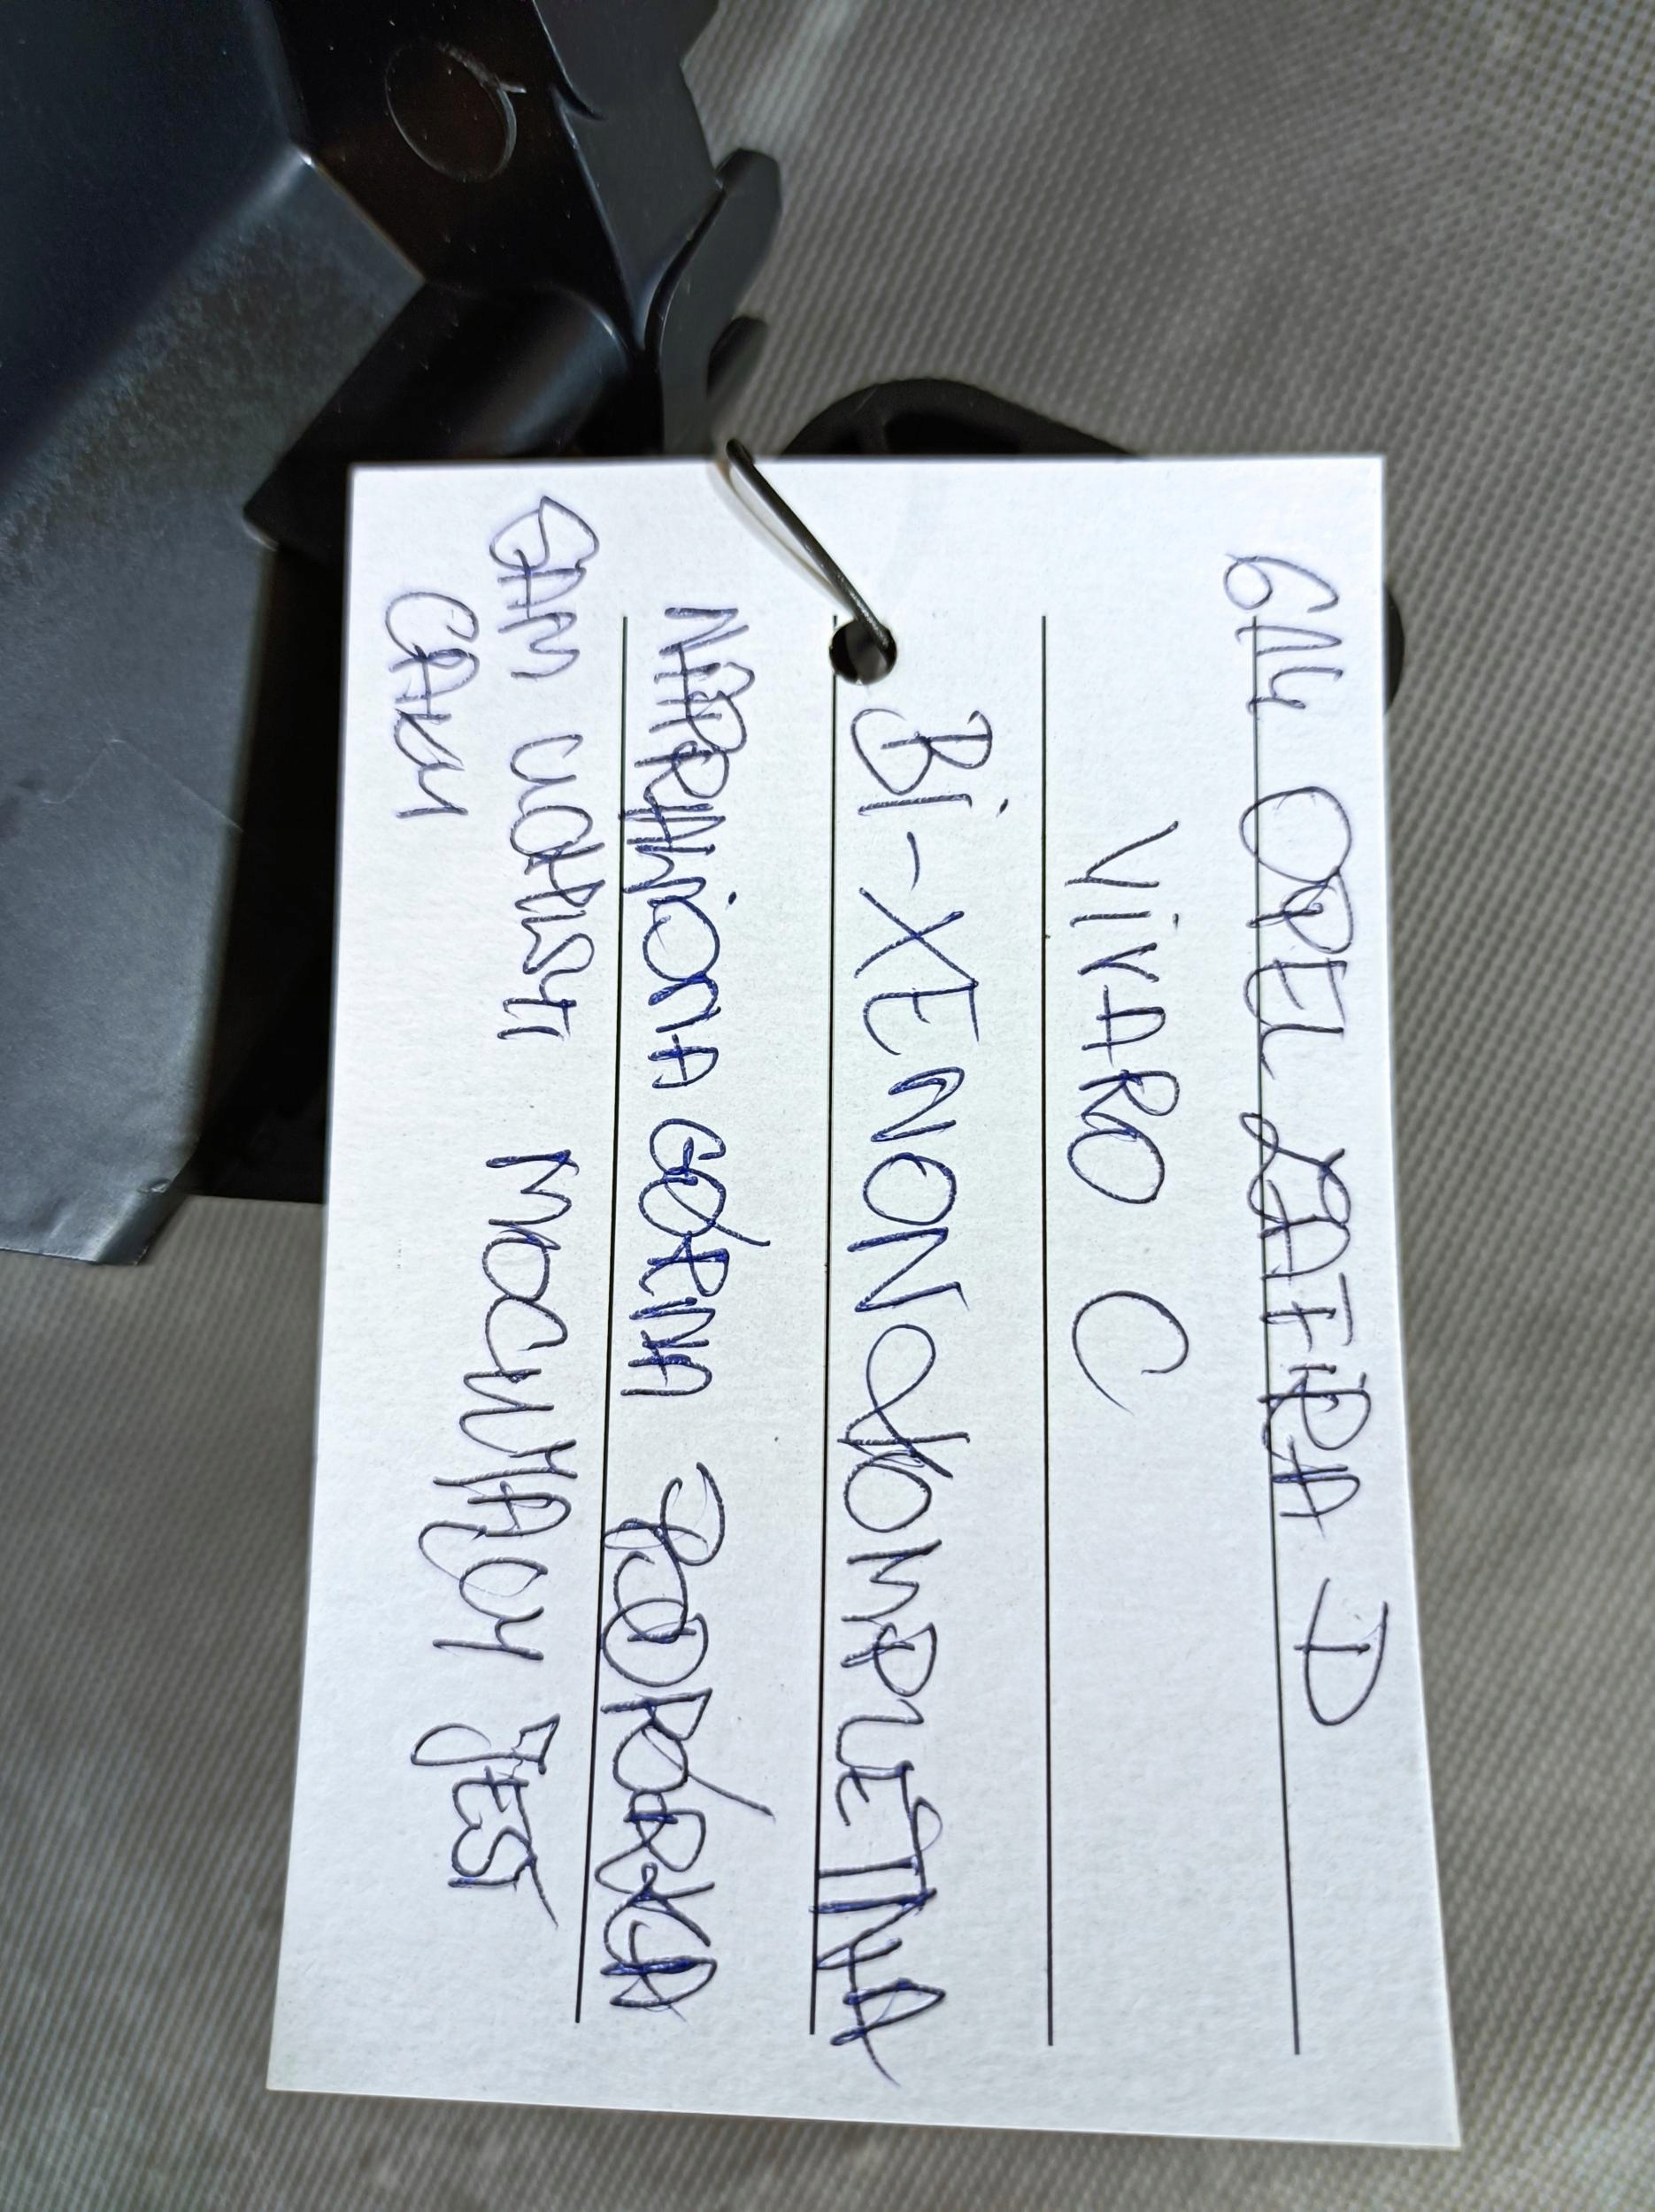 614 OPEL ZAFIRA D
VIVARO C
Bi-XENON KOMPLETNA
NAPRAWIONA GÓRNA PODPÓRKA
SAM UCHWYT MOCUJĄCY JEST
CAŁY